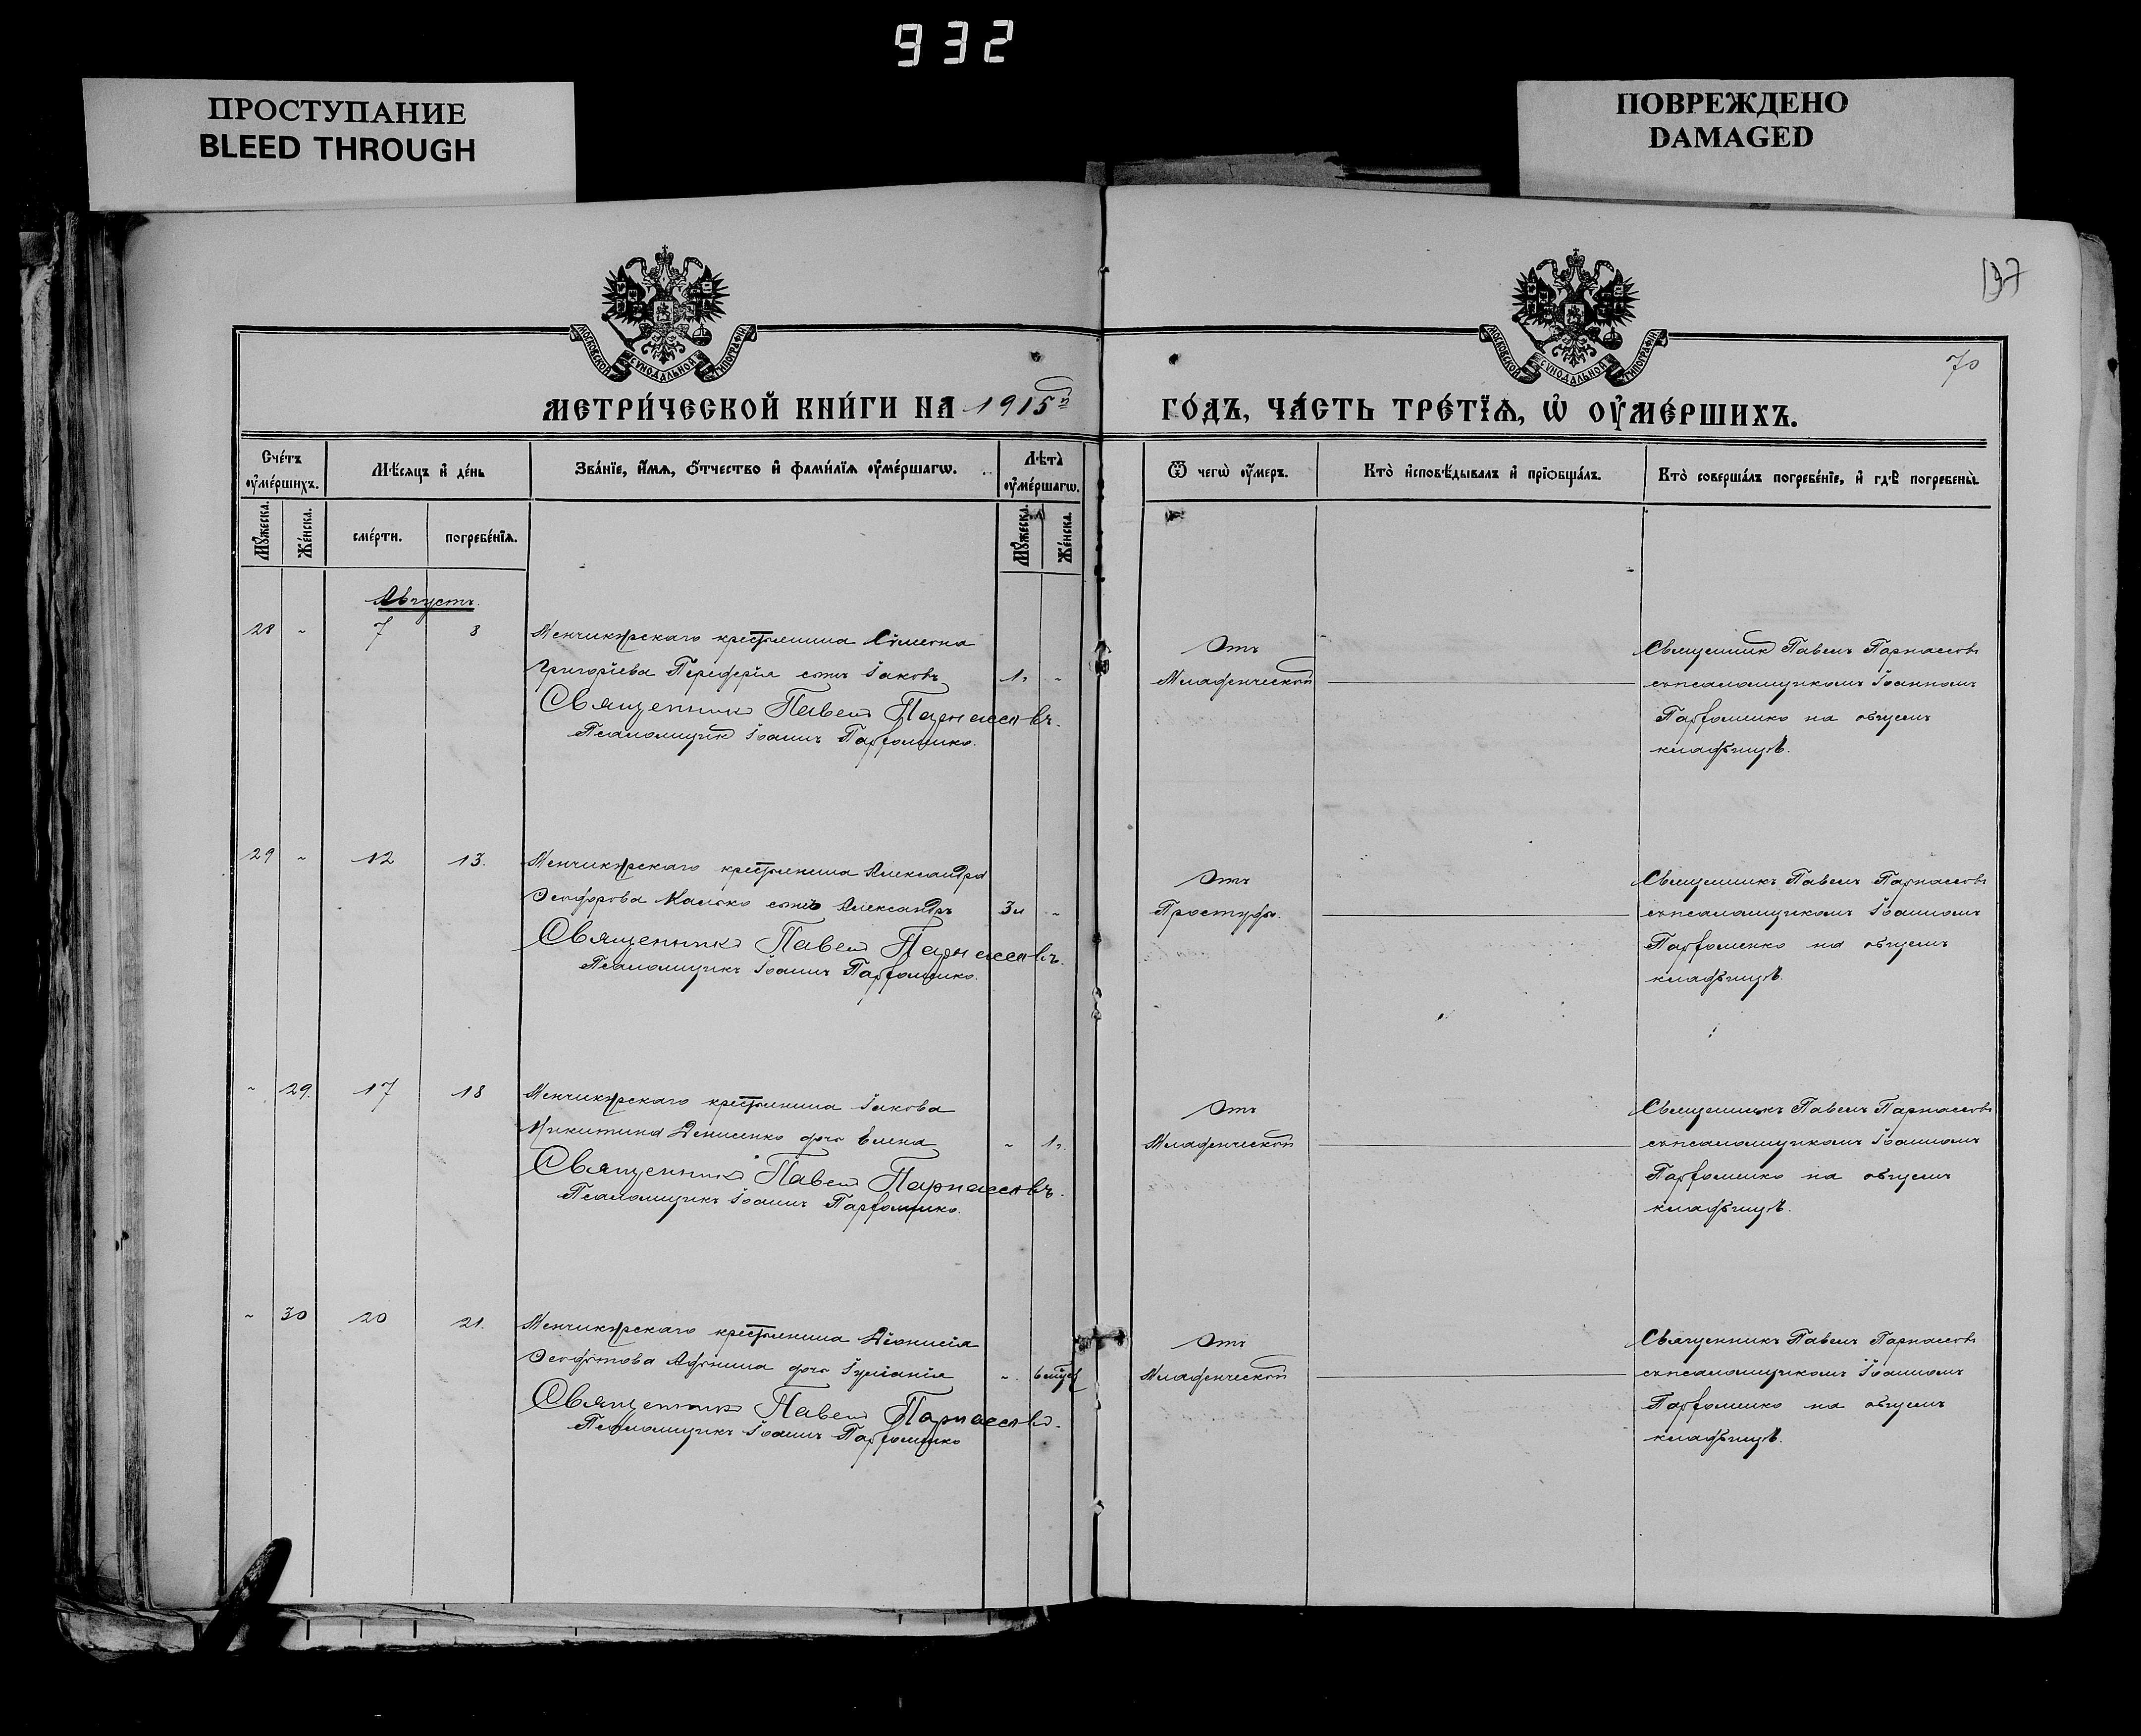 932
ПРОСТУПАНИЕ
BLEED THROUGH
ПОВРЕЖДЕНО
DAMAGED
137
70
МОСКОВСКОЙ СѴНОДАЛЬНОЙ ТИПОГРАФІИ
МОСКОВСКОЙ СѴНОДАЛЬНОЙ ТИПОГРАФІИ
МЕТРИ́ЧЕСКОЙ КНИ́ГИ НА 1915й ГО́ДЪ, ЧА́СТЬ ТРЕ́ТЇѦ, Ѡ҆ ОУ҆МЕ́РШИХЪ.
Сче́тъ оу҆ме́ршихъ.
Мѣ́сяцъ и҆ де́нь
Зва́нїе, и҆́мѧ, ѻ҆́тчество и҆ фами́лїѧ оу҆ме́ршагѡ.
Лѣ̀та оу҆ме́ршагѡ.
Ѿ чегѡ̀ оу҆́меръ.
Кто̀ и҆сповѣ́дывалъ и҆ прїѡбща́лъ.
Кто̀ соверша́лъ погребе́нїе, и҆ гдѣ̀ погребены̀.
Мꙋ́жеска.
Же́нска.
сме́рти.
погребе́нїѧ.
Мꙋ́жеска.
Же́нска.
Августъ.
28 " 7 8
Менчикурскаго крестьянина Сѵмеона
Григоріева Переферія сынъ Іаковъ 1г. "
Священникъ Павелъ Парнассовъ.
Псаломщикъ Іоаннъ Парфоменко.
Отъ
Младенческой
Священникъ Павелъ Парнассовъ
съ псаломщикомъ Іоанномъ
Парфоменко на общемъ
кладбищѣ.
29 " 12 13.
Менчикурскаго крестьянина Александра
Ѳеодорова Малько сынъ Александръ "
Священникъ Павелъ Парнассовъ.
Псаломщикъ Іоаннъ Парфоменко.
Отъ
Простуды.
Священникъ Павелъ Парнассовъ
съ псаломщикомъ Іоанномъ
Парфоменко на общемъ
кладбищѣ.
" 29. 17 18
Менчикурскаго крестьянина Іакова
Никитина Денисенко дочь Елена " 1г.
Священникъ Павелъ Парнассовъ.
Псаломщикъ Іоаннъ Парфоменко.
Отъ
Младенческой
Священникъ Павелъ Парнассовъ
съ псаломщикомъ Іоанномъ
Парфоменко на общемъ
кладбищѣ.
" 30 20 21.
Менчикурскаго крестьянина Діонисія
Афонина дочь Іуліанія "
Священникъ Павелъ Парнассовъ.
Псаломщикъ Іоаннъ Парфоменко
Отъ
Младенческой
Священникъ Павелъ Парнассовъ
съ псаломщикомъ Іоанномъ
Парфоменко на общемъ
кладбищѣ.